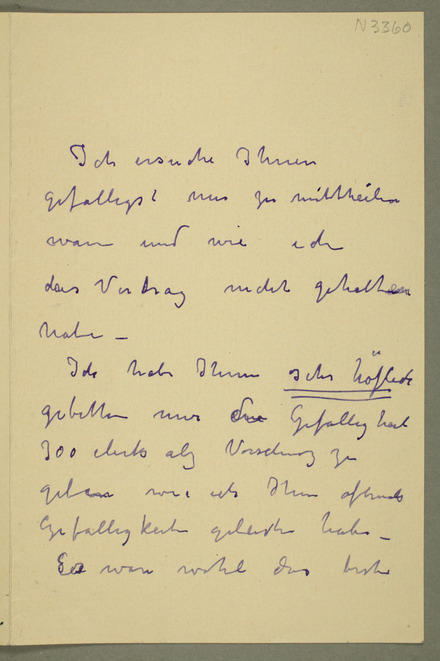 N3360
Ich ersuche Ihnen
gefälligst mir zu mittheilen
wann und wie ich
das Vertrag nicht gehalten
habe –
Ich habe Ihnen sehr höflich
gebetten mir die Gefälligkeit
300 Mark als Vorschuss zu
geben wie ich Ihnen oftmals
Gefälligkeiten geleistet habe –
Es wäre wohl das beste